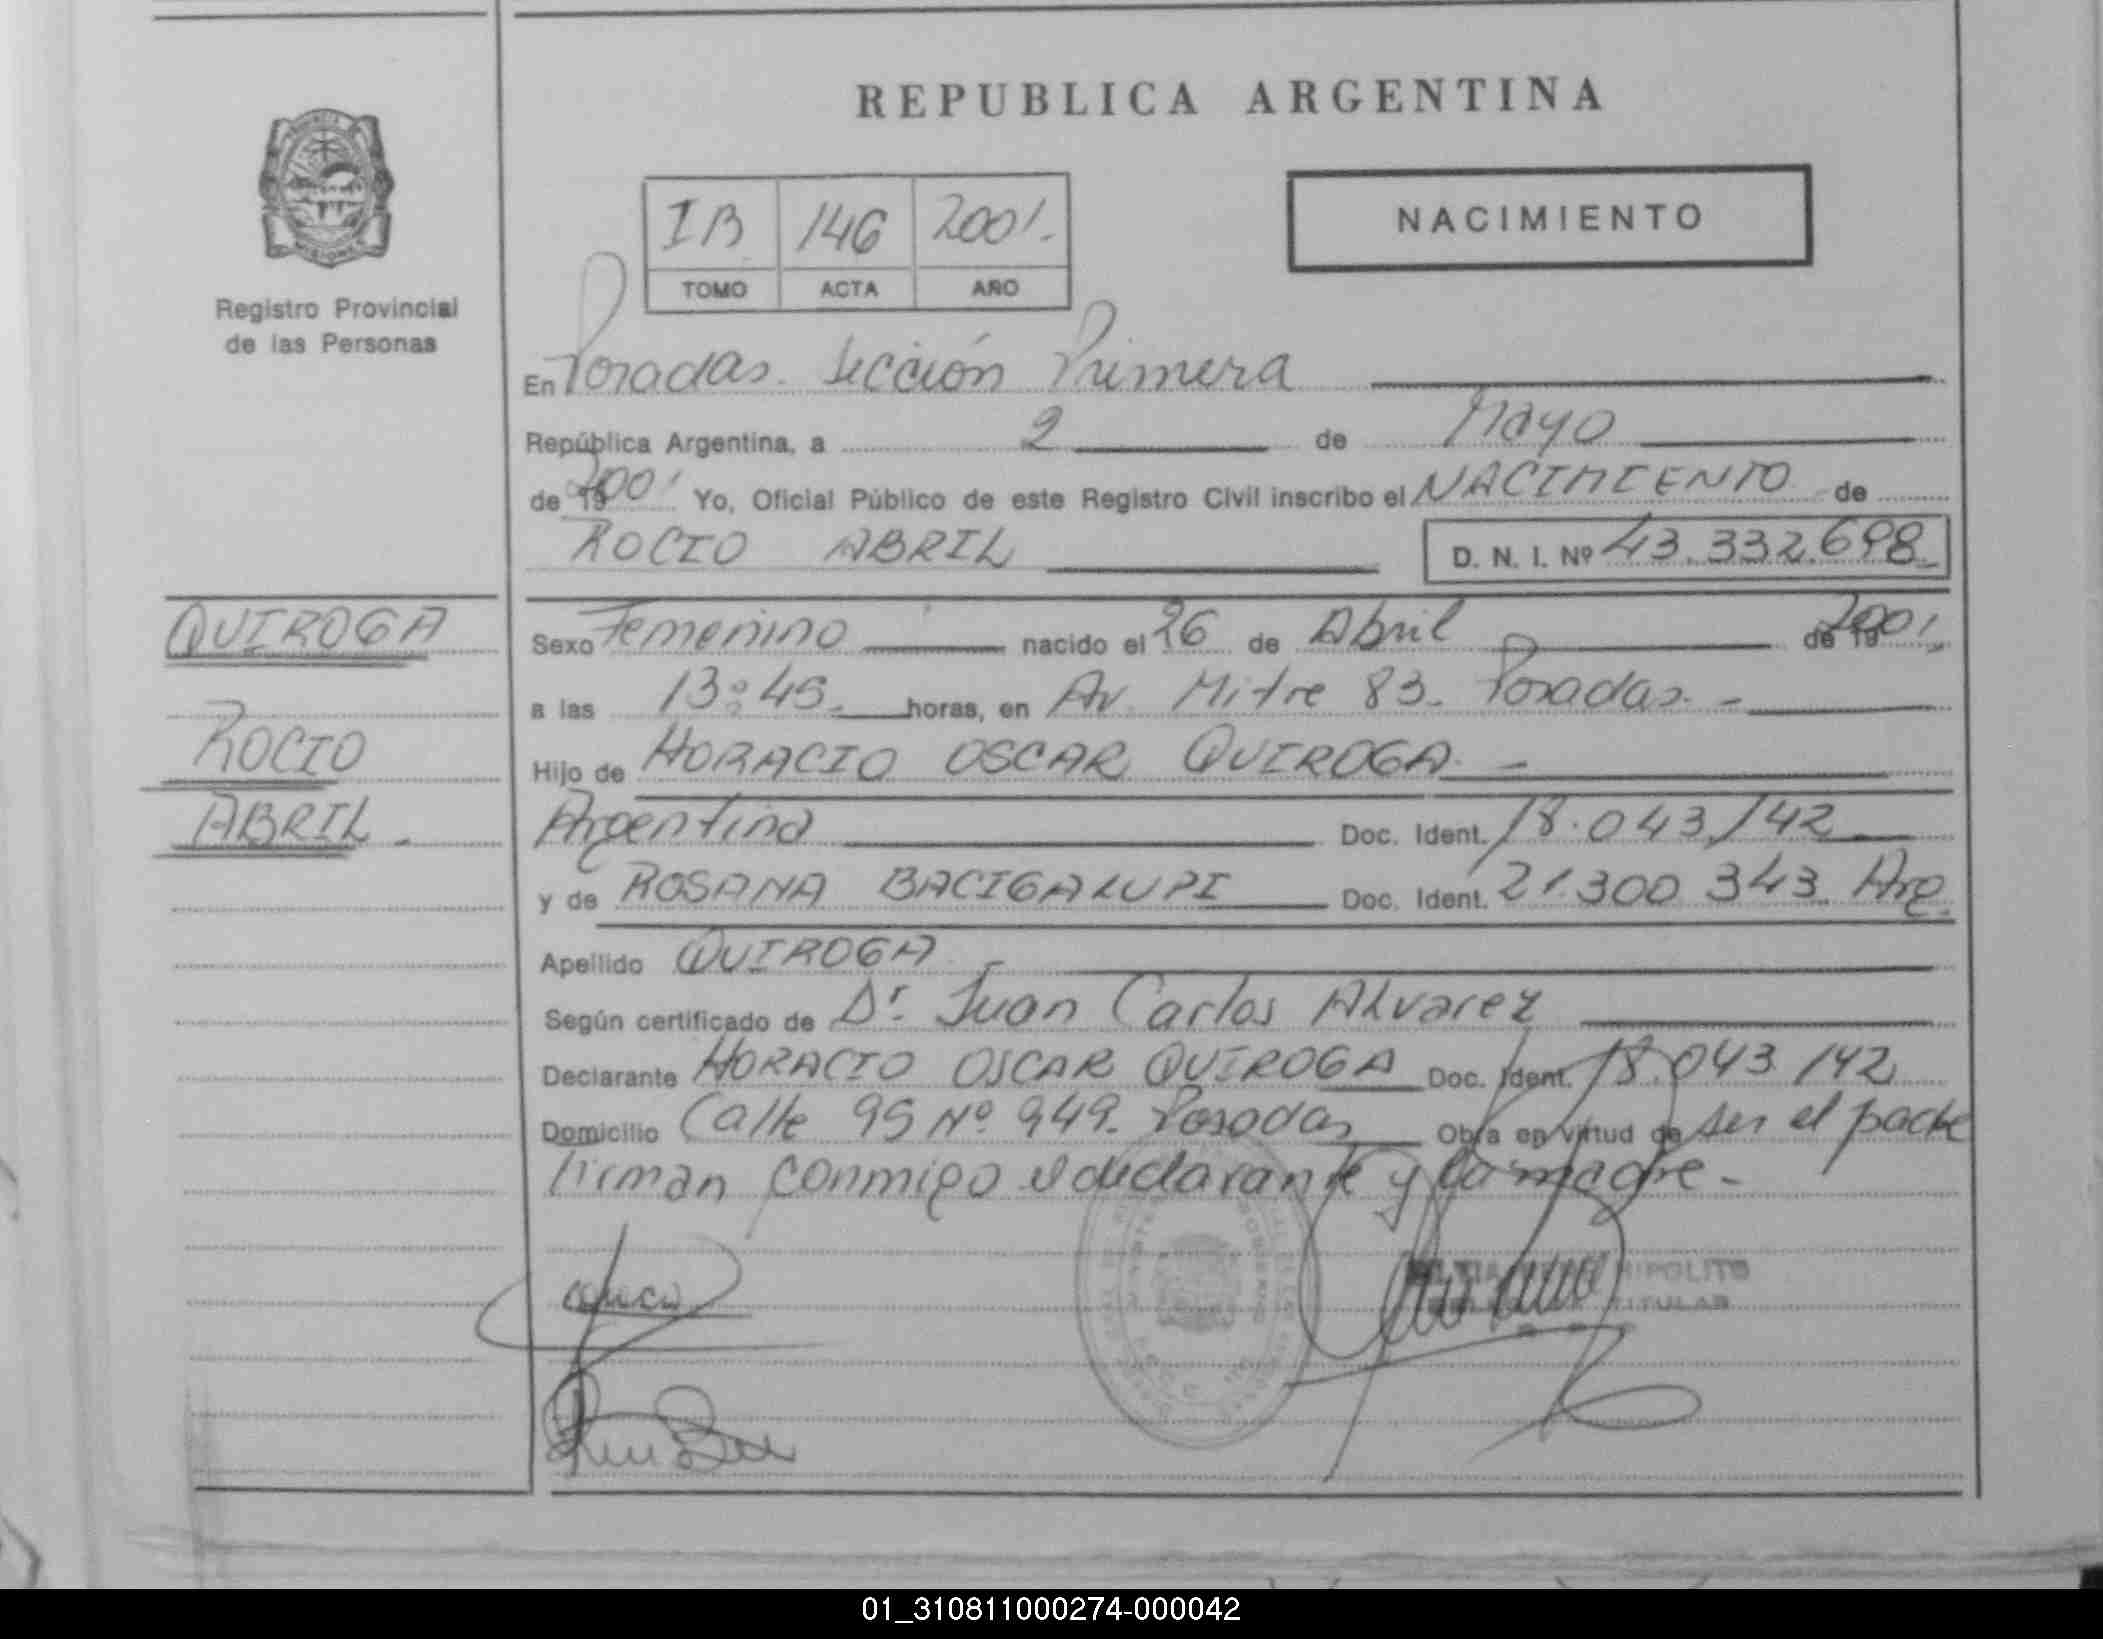 REPUBLICA ARGENTINA
NACIMIENTO
IB 146 2001.
TOMO ACTA AÑO
Registro Provincial
de las Personas
En Posadas. Sección Primera
República Argentina, a 2 de Mayo
de 2001 Yo, Oficial Público de este Registro Civil inscribo el NACIMIENTO de
ROCIO ABRIL D. N. I. Nº 43.332.698
QUIROGA
ROCIO
ABRIL.
Sexo Femenino nacido el 26 de Abril de 2001
a las 13:45. horas, en Av. Mitre 83. Posadas. -
Hijo de HORACIO OSCAR QUIROGA. -
Argentina Doc. Ident. 18.043142
y de ROSANA BACIGALUPI Doc. Ident. 21.300 343. Arg.
Apellido QUIROGA
Según certificado de Dr. Juan Carlos Alvarez
Declarante HORACIO OSCAR QUIROGA Doc. Ident. 18.043 142
Domicilio Calle 95 Nº 949. Posadas Obra en virtud de ser el padre
firman conmigo el declarante y la madre. -
HIPOLITO
TITULAR
01_310811000274-000042